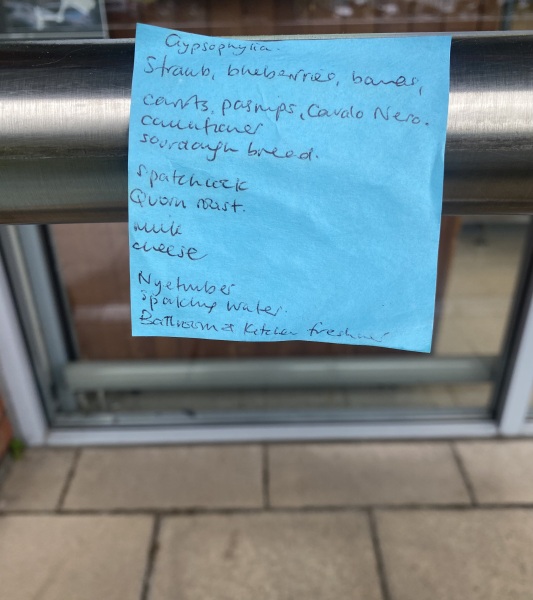 Gypsophylia.
Strawb, blueberries, banas,
carrots, parsnips, Cavalo Nero.
cauliflower
sourdough bread.
Spatchcock
Quorn roast.
milk
cheese
Nyetimber
Sparkling water.
Bathroom & Kitchen freshner